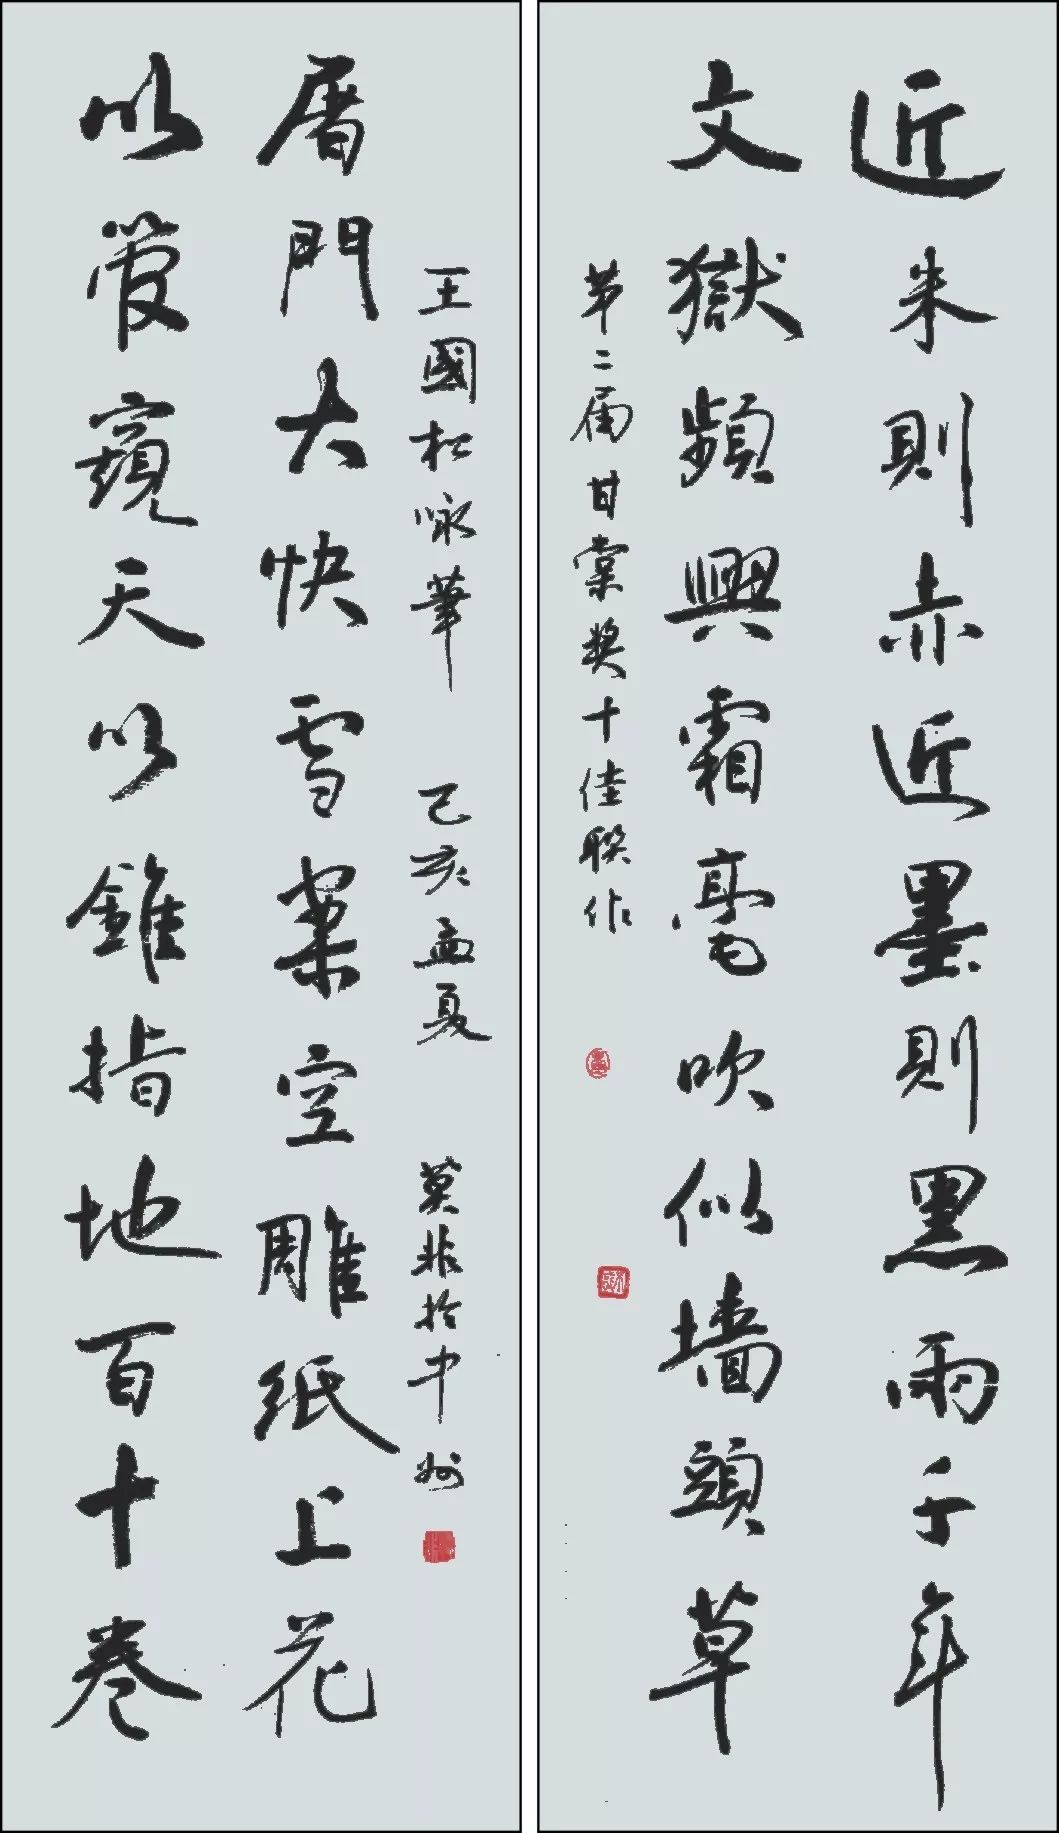 近朱則赤近墨則黑兩千年
文獄頻興霜毫吹似墙頭草
第二届甘棠奖十佳联作
以管窺天以錐指地百十卷
屠門大快雪案空雕紙上花
王國松咏筆 己亥孟夏 莫非於中州